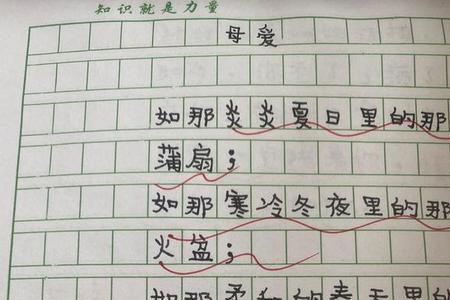 知识就是力量
母爱
如那炎炎夏日里的那
蒲扇；
如那寒冷冬夜里的那
火盆；
如那柔和的春天里的